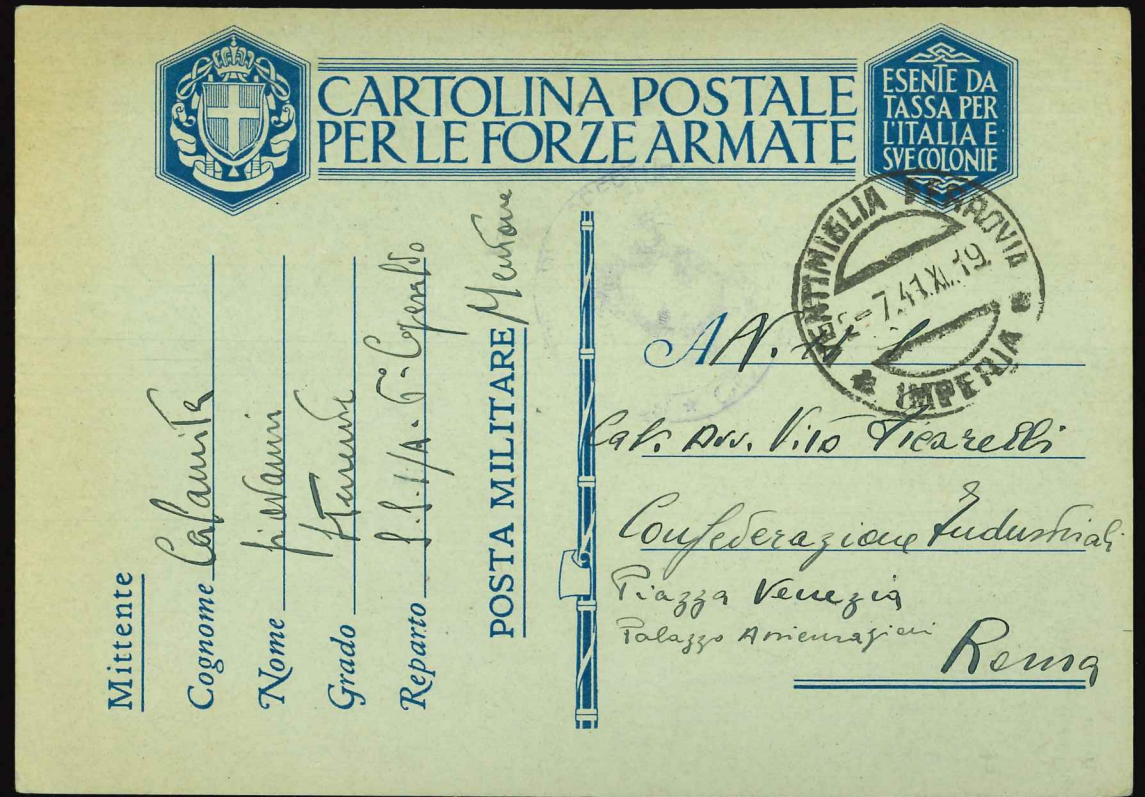 CARTOLINA POSTALE
PER LE FORZE ARMATE
ESENTE DA
TASSA PER
L'ITALIA E
SVE COLONIE
VENTIMIGLIA FERROVIA
-7.41.XI.19
* IMPERIA *
Mittente
Cognome Calamita
Nome Giovanni
Grado Tenente
Reparto
POSTA MILITARE Mentone
A N.
Cav. Avv. Vito Picarelli
Confederazione Industriali
Piazza Venezia
Palazzo Assicurazioni
Roma